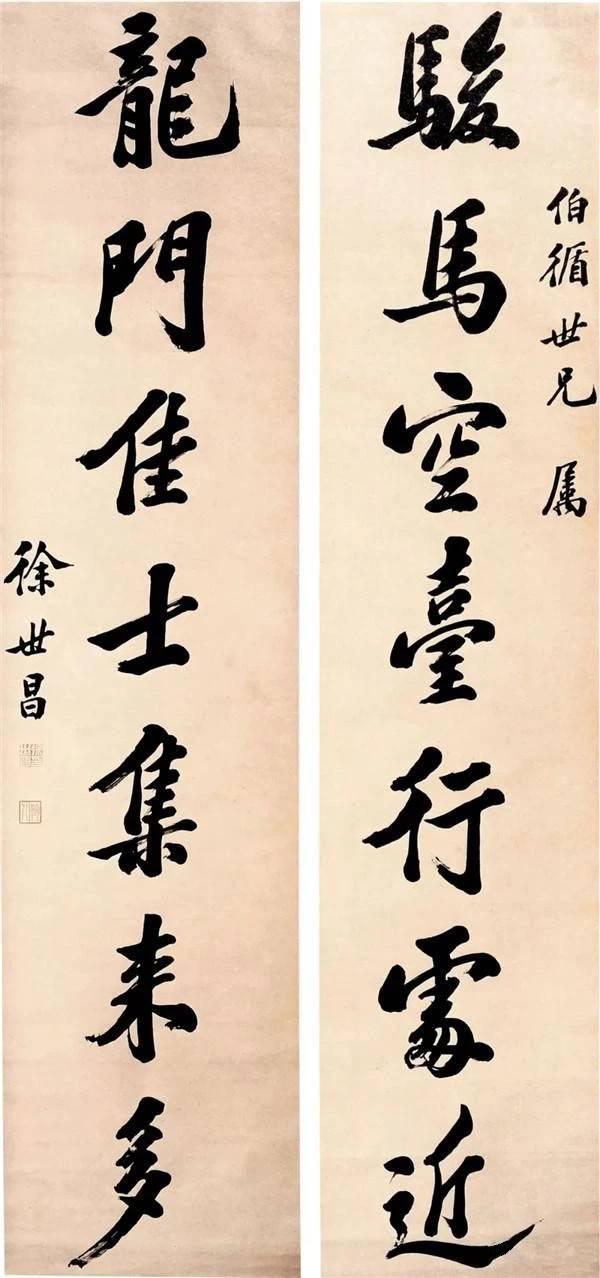 伯循世兄 属
駿馬空臺行處近
龍門佳士集來多
徐世昌